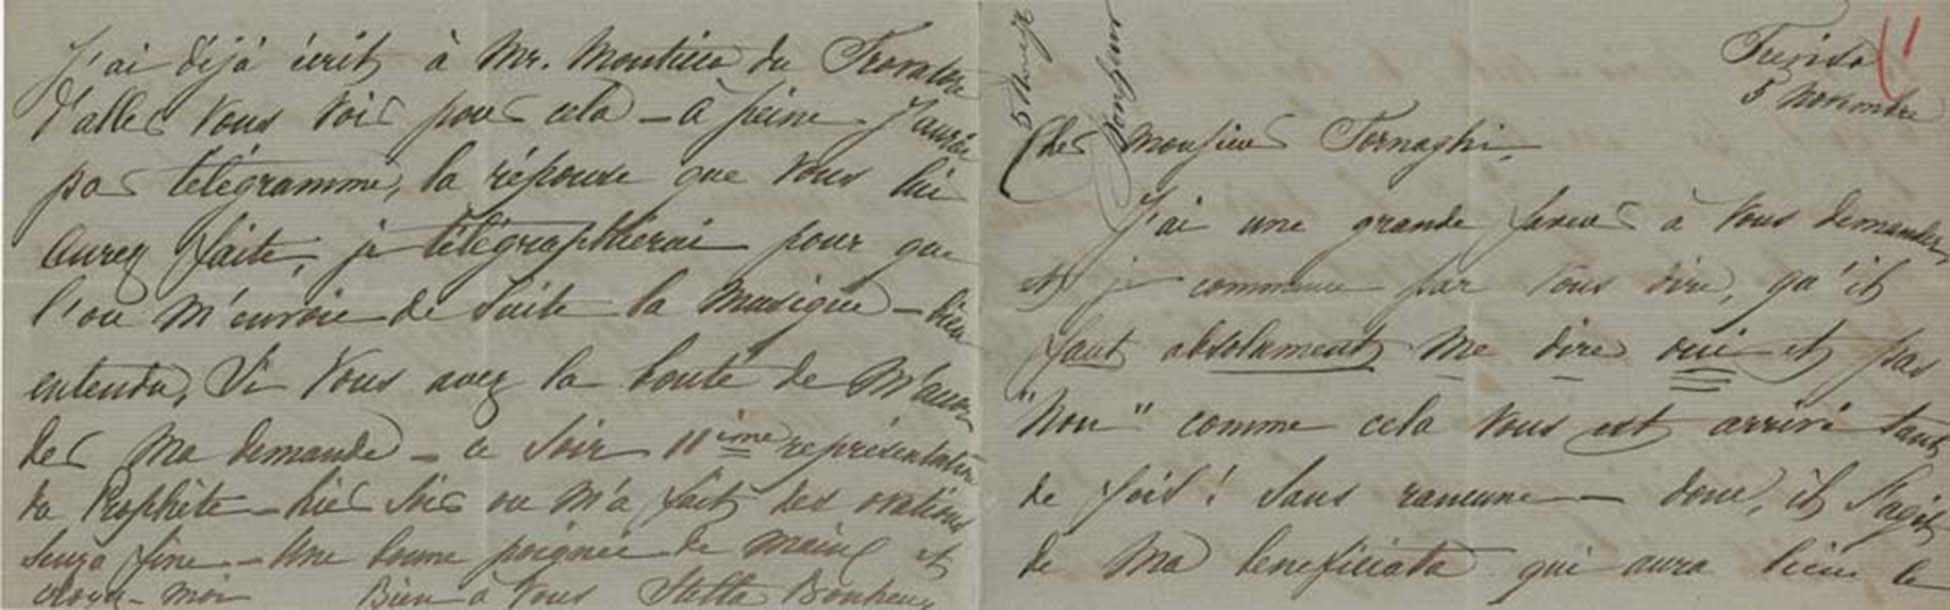 Treviso
5 Novembre
Cher Monsieur Tornaghi
J'ai une grande faveur à vous demander,
et je commence par vous dire, qu'il
faut absolument me dire oui et pas
"Non" comme cela vous est arrivé tant
de fois! Sans rancune — donc, il s'agit
de ma beneficiata qui aura lieu le
J'ai déjà écrit à Mr. du Trovatore
d'aller vous voir pour cela — à peine j'aurai
par télégramme, la réponse que vous lui
aurez faite, je télégraphierai pour que
l'on m'envoie de suite la musique — bien
entendu, si vous avez la bonté de m'accor
der ma demande — ce soir 11ième représentation
du Prophète — hier soir on m'a fait des ovations
senza fine — Une bonne poignée de mains et
croyez-moi Bien à vous Stella Bonheur